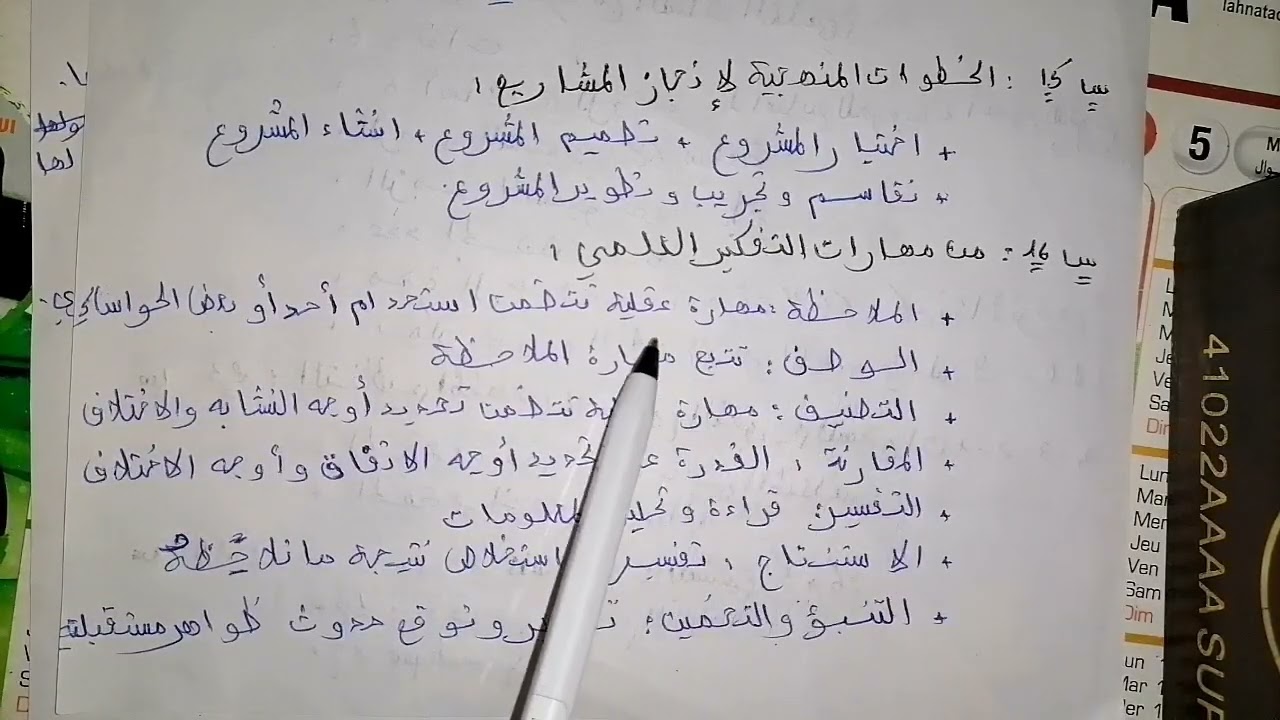 س 15 : الخطوات المنهجية لإنجاز المشاريع :
+ اختيار المشروع + تصميم المشروع + انشاء المشروع
+ تقاسم وتجريب وتطوير المشروع.
س 16 : من مهارات التفكير العلمي :
+ الملاحظة : مهارة عقلية تتضمن استخدام أحد أو بعض الحواس
+ الوصف : تتبع مهارة الملاحظة
+ التصنيف : مهارة تتضمن تحديد أوجه التشابه والاختلاف
+ المقارنة : القدرة تحديد أوجه الاتفاق وأوجه الاختلاف
+ التفسير : قراءة و المعلومات
+ الاستنتاج : تفسير استخلاص نتيجة ما نلاحظه
+ التنبؤ والتخمين : وتوقع حدوث ظواهر مستقبلية
لها
lahnatac
5
41022AAAA SUP
Lun
Mar
Mer
Jeu
Ven
Sam
Dim